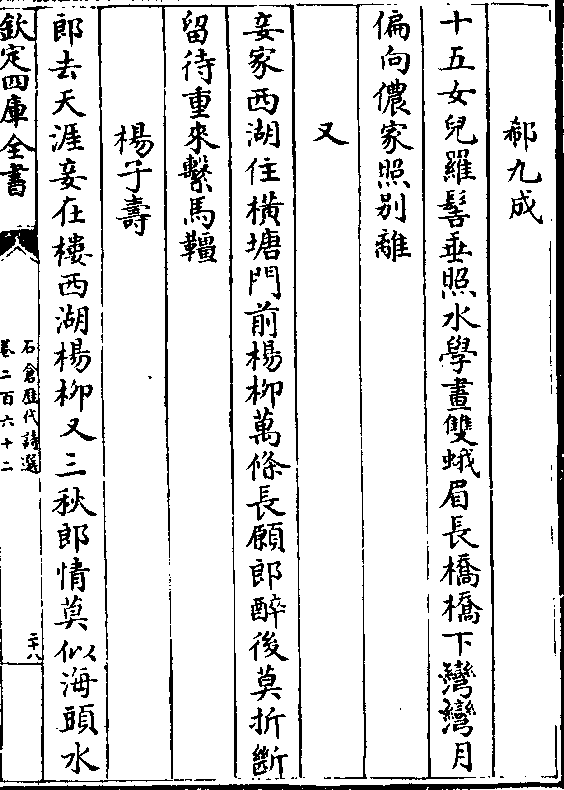 郝九成
十五女兒羅髻垂照水學畫雙蛾眉長橋橋下彎彎月
偏向儂家照别離
又
妾家西湖住横塘門前楊柳萬條長願郎醉後莫折斷
留待重來繫馬韁
楊子壽
郎去天涯妾在樓西湖楊柳又三秋郎情莫似海頭水
欽定四庫全書
石倉歷代詩選
卷二百六十二
二十八